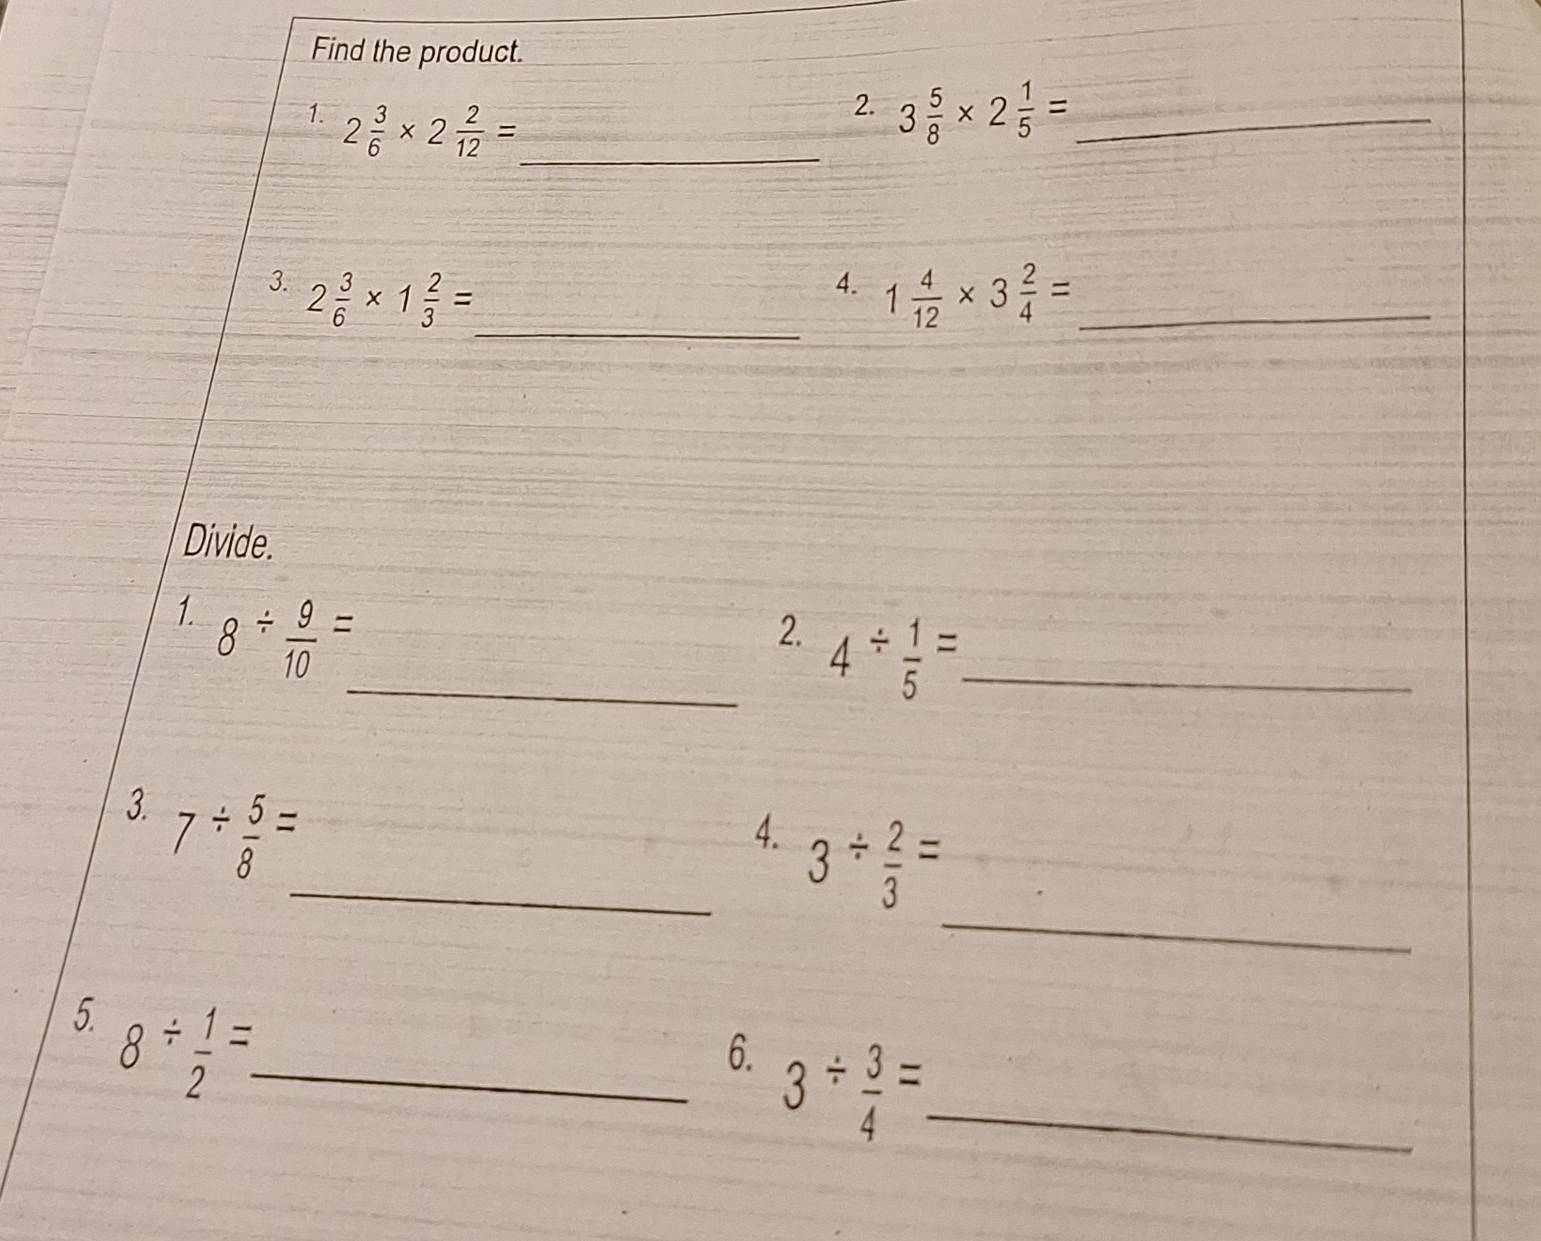 Find the product.
1. 2 3/6 × 2 2/12 = ________
2. 3 5/8 × 2 1/5 = ________
3. 2 3/6 × 1 2/3 = ________
4. 1 4/12 × 3 2/4 = ________
Divide.
1. 8 ÷ 9/10 = ________
2. 4 ÷ 1/5 = ________
3. 7 ÷ 5/8 = ________
4. 3 ÷ 2/3 = ________
5. 8 ÷ 1/2 = ________
6. 3 ÷ 3/4 = ________